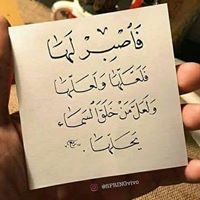 فَاصْبِرْ لَهَا
فَلَعَلَّهَا وَلَعَلَّهَا
وَلَعَلَّ مَنْ خَلَقَ السَّمَاءَ
يَحُلُّهَا
@SPRINGvivo